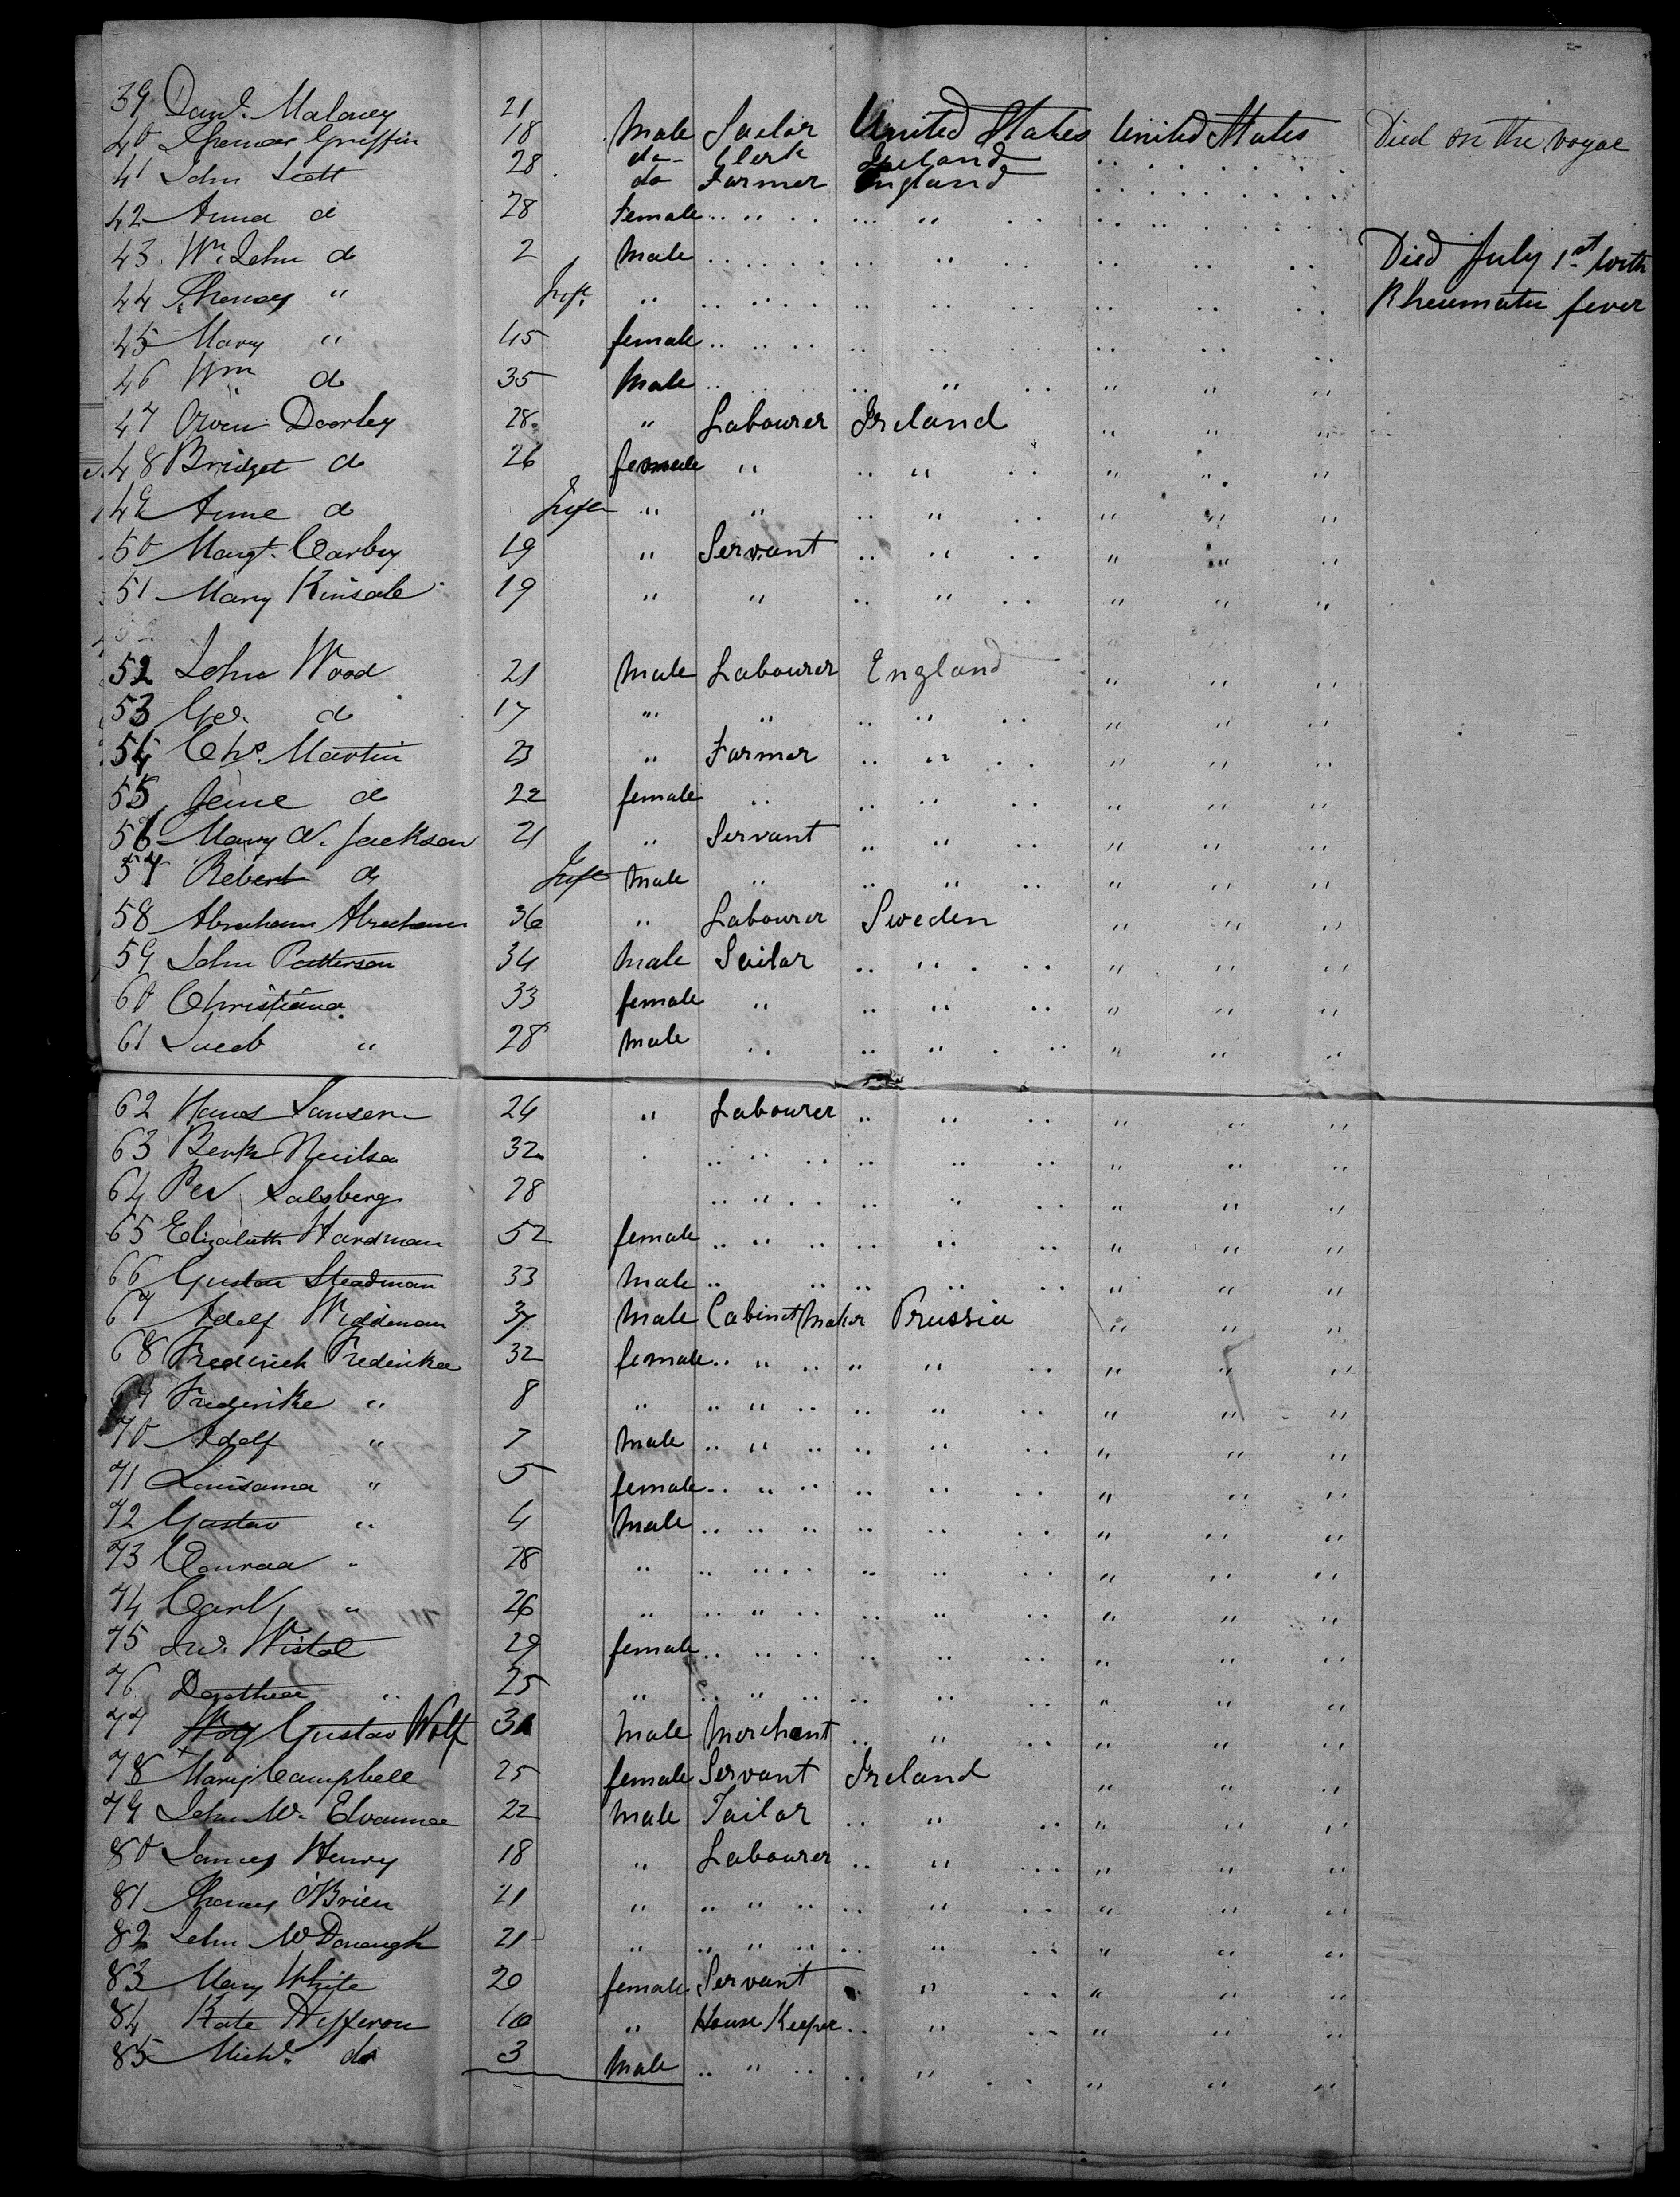 39 Danl. Maloney 21 Male Sailor United States United States Died on the voyae
40 Thomas Griffin 18 do Clerk Ireland .. .. ..
41 John Scott 28 do Farmer England .. .. ..
42 Anna do 28 Female .. .. .. .. .. ..
43 Wm. John do 2 Male .. .. .. .. .. .. Died July 1st with
44 Thomas " Inft. " .. .. .. .. .. .. Rheumatic fever
45 Mary " 45 female .. .. .. .. .. ..
46 Wm do 35 Male .. .. .. " " "
47 Owen Doorley 28 " Labourer Ireland " " "
48 Bridget do 26 female " .. " .. " " "
49 Anne do Inft " " .. " .. " " "
50 Margt. Carbry 19 " Servant .. " .. " " "
51 Mary Kinsale 19 " " .. " .. " " "
52 John Wood 21 Male Labourer England " " "
53 Geo. do 17 " " .. " .. " " "
54 Chs. Martin 23 " Farmer .. " .. " " "
55 Jane do 22 female " .. " .. " " "
56 Mary A. Jackson 21 " Servant .. " .. " " "
57 Robert do Inft Male " .. " .. " " "
58 Abraham Abraham 36 " Labourer Sweden " " "
59 John Patterson 34 Male Sailor .. " .. " " "
60 Christiana 33 female " .. " .. " " "
61 Jacob " 28 Male " .. " .. " " "
62 Hans Jansen 24 " Labourer .. " .. " " "
63 32 .. " .. .. " .. " " "
64 Per Salsberg 28 .. " .. .. " .. " " "
65 Elizabeth Hardman 52 female .. " .. .. " .. " " "
66 Gustav Steadman 33 Male .. .. .. " .. " " "
67 Adolf Widdeman 37 Male Cabinet Maker Prussia " " "
68 Frederick Frederikee 32 female .. " .. " " .. " " "
69 Frederike " 8 " .. " .. .. " .. " " "
70 Adolf " 7 Male .. " .. .. " .. " " "
71 Louisama " 5 female .. " .. .. " .. " " "
72 Gustav " 4 Male .. " .. .. " .. " " "
73 Conrad " 28 " .. " .. .. " .. " " "
74 Carl " 26 " .. " .. .. " .. " " "
75 Wistal 29 female .. " .. .. " .. " " "
76 Dorothea " 25 " .. " .. .. " .. " " "
77 Gustav Wolf 31 Male Merchant .. " .. " " "
78 Mary Campbell 25 female Servant Ireland " " "
79 John 22 Male Tailor .. " .. " " "
80 James Henry 18 " Labourer .. " .. " " "
81 Thomas O'Brien 21 " .. " .. .. " .. " " "
82 John McDonough 21 " .. " .. .. " .. " " "
83 Mary White 20 female Servant .. " .. " " "
84 Kate Hefferon " House Keeper .. " .. " " "
85 Michl. do 3 Male .. " .. .. " .. " " "